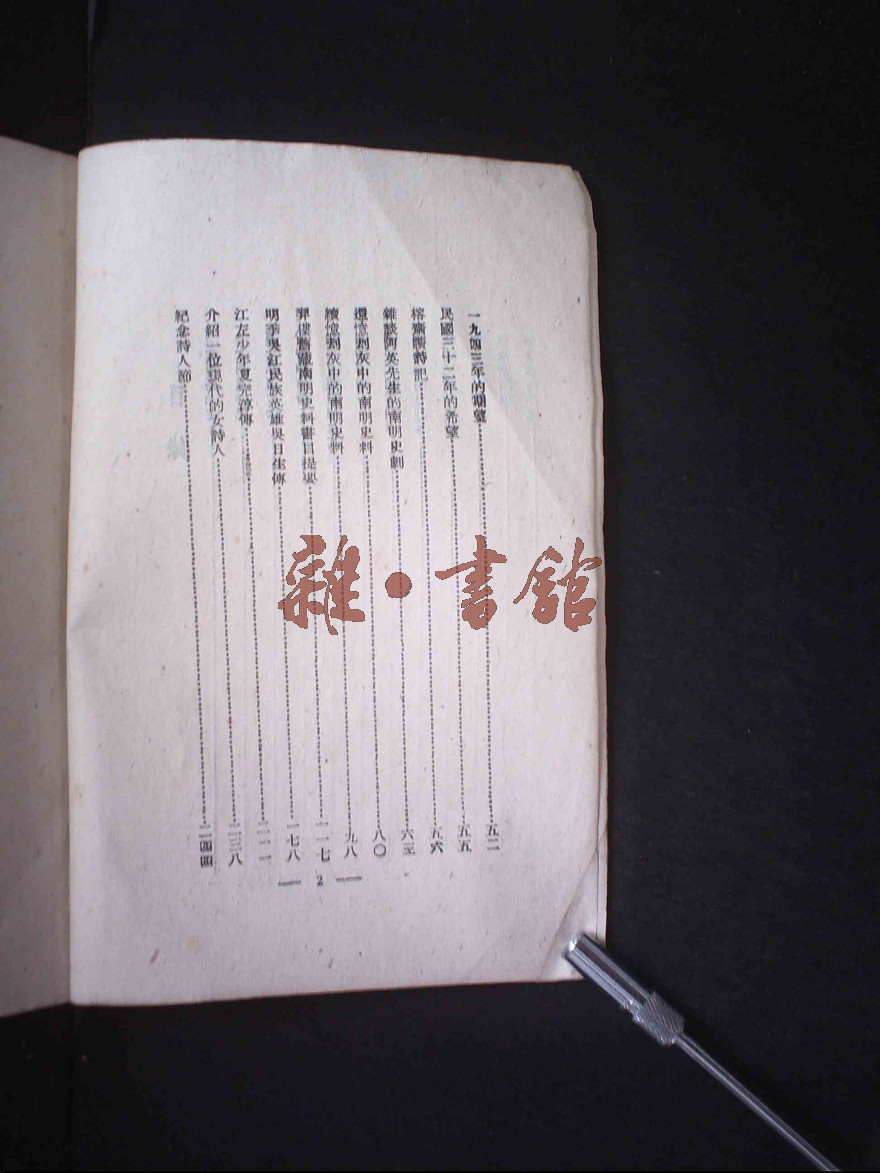 一九四三年的期望……五二
民國三十二年的希望……五五
榕齋讀詩記……五六
雜談阿英先生的南明史劇……六三
還憶劫灰中的南明史料……八〇
續憶劫灰中的南明史料……九八
羿樓舊藏南明史料書目提要……一一七
明季吳江民族英雄吳日生傳……一七八
江左少年夏完淳傳……二一一
介紹一位現代的女詩人……二三八
紀念詩人節……二四四
— 2 —
雜・書館